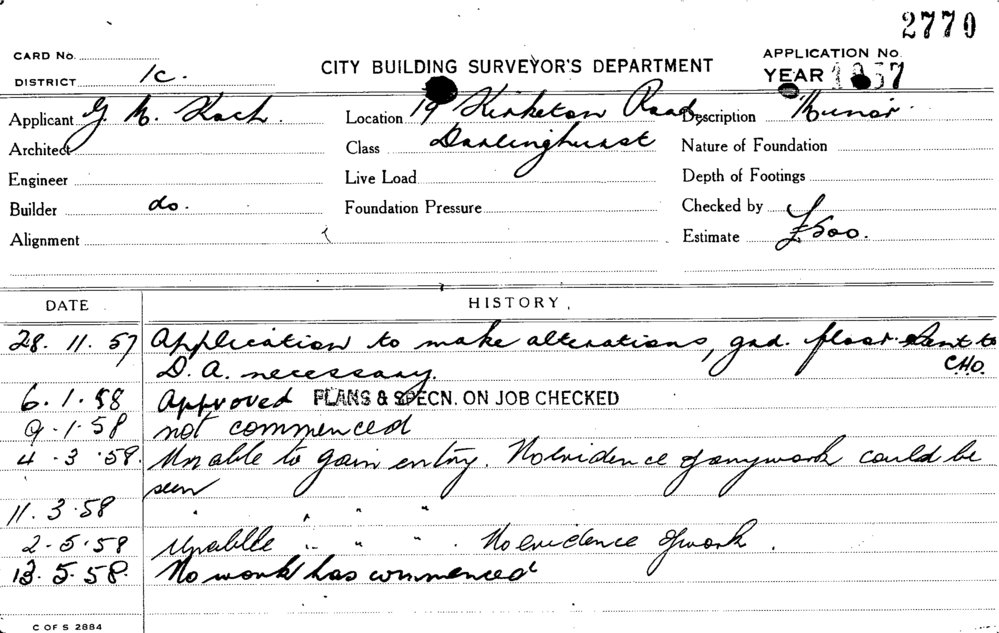 2770
CARD No.
APPLICATION No.
DISTRICT 1c.
CITY BUILDING SURVEYOR'S DEPARTMENT
YEAR 1957
Applicant G M. Koch.
Location 19 Kirketon Road,
Description Minor.
Architect
Class Darlinghurst
Nature of Foundation
Engineer
Live Load
Depth of Footings
Builder do.
Foundation Pressure
Checked by
Alignment
Estimate £500.
DATE
HISTORY
28. 11. 57 Application to make alterations, gnd. floor. Sent to
D. A. necessary. C.H.O.
6. 1. 58 Approved PLANS & SPECN. ON JOB CHECKED
9. 1. 58 not commenced
4. 3. 58. Unable to gain entry. No evidence of any work could be
seen
11. 3. 58 " " " "
2. 5. 58 Unablle " " " . No evidence of work.
13. 5. 58. No work has commenced
C OF S 2884